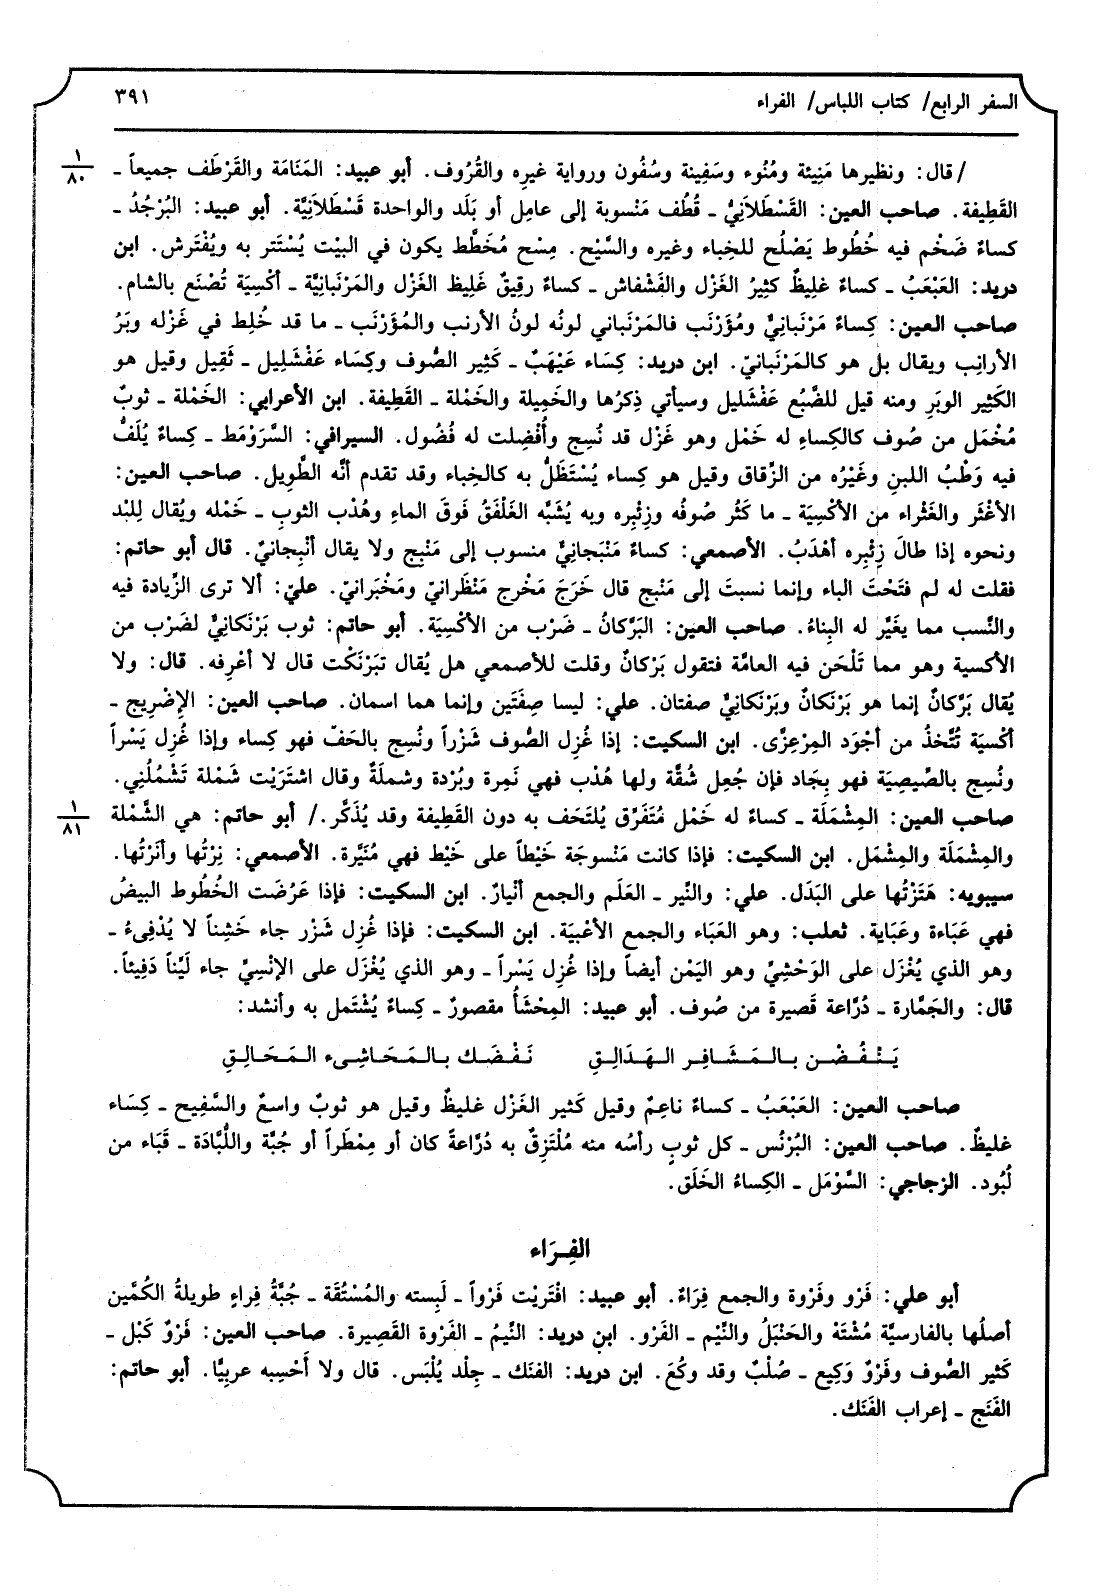 السفر الرابع/ كتاب اللباس/ الفراء
٣٩١
/ قال: ونظيرها مَنِيئة ومُنُوء وسَفِينة وسُفُون ورواية غيره والقُرُوف. أبو عبيد: المَنَامَة والقَرْطَف جميعاً ـ
١
٨٠
القَطِيفة. صاحب العين: القَسْطَلاَنِيُّ ـ قُطُف مَنْسوبة إلى عامِل أو بَلَد والواحدة قَسْطَلاَنِيَّة. أبو عبيد: البُرْجُدُ ـ
كساءٌ ضَخْم فيه خُطُوط يَصْلُح للخِباء وغيره والسَّيْح. مِسْح مُخَطَّط يكون في البيْت يُسْتَتر به ويُفْتَرش. ابن
دريد: العَبْعَبُ ـ كساءٌ غلِيظٌ كثِيرُ الغَزْل والفَشْفاش ـ كساءٌ رقِيقٌ غَلِيظ الغَزْل والمَرْنَبانِيَّة ـ أكْسِيَة تُصْنَع بالشام.
صاحب العين: كِساءٌ مَرْنَبانِيٌّ ومُؤَرْنَب فالمَرْنَباني لونُه لونُ الأرنب والمُؤَرْنَب ـ ما قد خُلِط في غَزْله وبَرُ
الأرانِب ويقال بل هو كالمَرْنَبانيّ. ابن دريد: كِسَاء عَيْهَبٌ ـ كَثِير الصُّوف وكِسَاء عَفْشَلِيل ـ ثَقِيل وقيل هو
الكَثِير الوبَرِ ومنه قيل للضَّبُع عَفْشليل وسيأتي ذِكرُها والخَمِيلة والخَمْلة ـ القَطِيفة. ابن الأعرابي: الخَمْلة ـ ثوبٌ
مُخْمَل من صُوف كالكِساءِ له خَمْل وهو غَزْل قد نُسِج وأُفْضِلت له فُضُول. السيرافي: السَّرَوْمَط ـ كِساءٌ يُلَفُّ
فيه وَطْبُ اللبنِ وغَيْرُه من الزِّقاق وقيل هو كِساء يُسْتَظَلُّ به كالخِباء وقد تقدم أنَّه الطَّوِيل. صاحب العين:
الأغْثَر والغَثْراء من الأكْسِيَة ـ ما كَثُر صُوفُه وزِئْبِره وبه يُشَبَّه الغَلْفَقُ فَوقَ الماءِ وهُدْب الثوبِ ـ خَمْله ويُقال لِلِبْد
ونحوه إذا طالَ زِئْبِره أهْدَبُ. الأصمعي: كساءٌ مَنْبَجانِيٌّ منسوب إلى مَنْبِج ولا يقال أنْبِجانيٌ. قال أبو حاتم:
فقلت له لم فتَحْتَ الباء وإنما نسبتَ إلى مَنْبِج قال خَرَجَ مَخْرج مَنْظَرانيّ ومَخْبَرانيّ. عليّ: ألا ترى الزِّيادة فيه
والنَّسب مما يغَيَّر له البِناءُ. صاحب العين: البَرَّكانُ ـ ضَرْب من الأكْسِيَة. أبو حاتم: ثوب بَرْنَكانِيٌّ لضَرْب من
الأكسية وهو مما تَلْحَن فيه العامَّة فتقول بَرْكانٌ وقلت للأصمعي هل يُقال تبَرْنَكْت قال لا أعْرِفه. قال: ولا
يُقال بَرَّكانٌ إنما هو بَرْنَكانٌ وبَرْنَكانِيٌّ صفتان. علي: ليسا صِفَتَين وإنما هما اسمان. صاحب العين: الإضْرِيج ـ
أكْسيَة تُتَّخذُ من أجْوَد المِرْعِزَّى. ابن السكيت: إذا غُزِل الصُّوف شَزْراً ونُسِج بالحَفّ فهو كِساء وإذا غُزِل يَسْراً
ونُسِج بالصِّيصِيَة فهو بِجَاد فإن جُعِل شُقَّة ولها هُدْب فهي نَمِرة وبُرْدة وشملَةٌ وقال اشتَرَيْت شَمْلة تَشْمُلُنِي.
صاحب العين: المِشْمَلَة ـ كساءٌ له خَمْل مُتَفَرِّق يُلتَحَف به دون القَطِيفة وقد يُذَكَّر./ أبو حاتم: هي الشَّمْلة
١
٨١
والمِشْمَلَة والمِشْمَل. ابن السكيت: فإذا كانت مَنْسوجَة خَيْطاً على خَيْط فهي مُنَيَّرة. الأصمعي: نِرْتُها وأنَرْتُها.
سيبويه: هَنَرْتُها على البَدَل. علي: والنِّير ـ العَلَم والجمع أنْيارٌ. ابن السكيت: فإذا عَرُضَت الخُطُوط البيضُ
فهي عَبَاءة وعَبَاية. ثعلب: وهو العَبَاء والجمع الأعْبَيَة. ابن السكيت: فإذا غُزِل شَزْر جاء خَشِناً لا يُدْفِىءُ ـ
وهو الذي يُغْزَل على الوَحْشِيِّ وهو اليَمْن أيضاً وإذا غُزِل يَسْراً ـ وهو الذي يُغْزَل على الإنْسِيِّ جاء لَيِّناً دَفِيئاً.
قال: والجَمَّارة ـ دُرَّاعة قَصيرة من صُوف. أبو عبيد: المِحْشَأُ مقصورٌ ـ كِساءٌ يُشْتَمل به وأنشد:
يَـنْـفُـضْـن بـالـمَـشَـافِـر الـهَـدَالـِقِ نَـفْـضَـك بـالـمَـحَـاشِـىء الـمَـحَـالِـقِ
صاحب العين: العَبْعَبُ ـ كساءٌ ناعِمٌ وقيل كَثير الغَزْل غليظٌ وقيل هو ثوبٌ واسعٌ والسَّفِيح ـ كِسَاء
غليظٌ. صاحب العين: البُرْنُس ـ كل ثوبٍ رأسُه منه مُلْتَزِقٌ به دُرَّاعةً كان أو مِمْطَراً أو جُبَّة واللُّبَّادَة ـ قَبَاء من
لُبُود. الزجاجي: السَّوْمَل ـ الكِساءُ الخَلَق.
الفِـرَاء
أبو علي: فَرْو وفَرْوة والجمع فِرَاءٌ. أبو عبيد: افْتَرَيْت فَرْواً ـ لَبِسته والمُسْتُقَة ـ جُبَّةُ فِراءٍ طويلةُ الكُمَّين
أصلُها بالفارسيَّة مُشْتَهْ والحَنْبَلُ والنِّيْم ـ الفَرْو. ابن دريد: النِّيمُ ـ الفَرْوة القَصِيرة. صاحب العين: فَرْوٌ كَبْل ـ
كَثير الصُّوف وفَرْوٌ وَكِيع ـ صُلْبٌ وقد وكُعَ. ابن دريد: الفنَك ـ جِلْد يُلْبَس. قال ولا أحْسِبه عربِيًّا. أبو حاتم:
الفَنَج ـ إعراب الفَنَك.